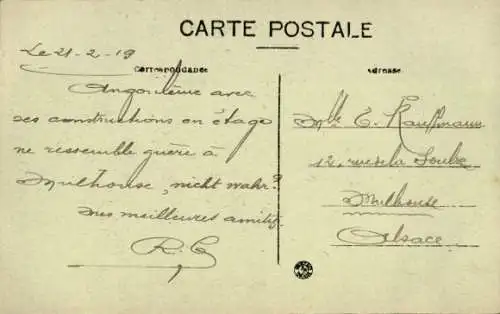 CARTE POSTALE
Le 21-2-19
Correspondance
Adresse
Angoulême avec
ses constructions en étage
ne ressemble guère à
Mulhouse, nicht wahr?
Mes meilleures amitiés
R. C.
Mlle E. Kauffmann
12, rue de la Loutre
Mulhouse
Alsace